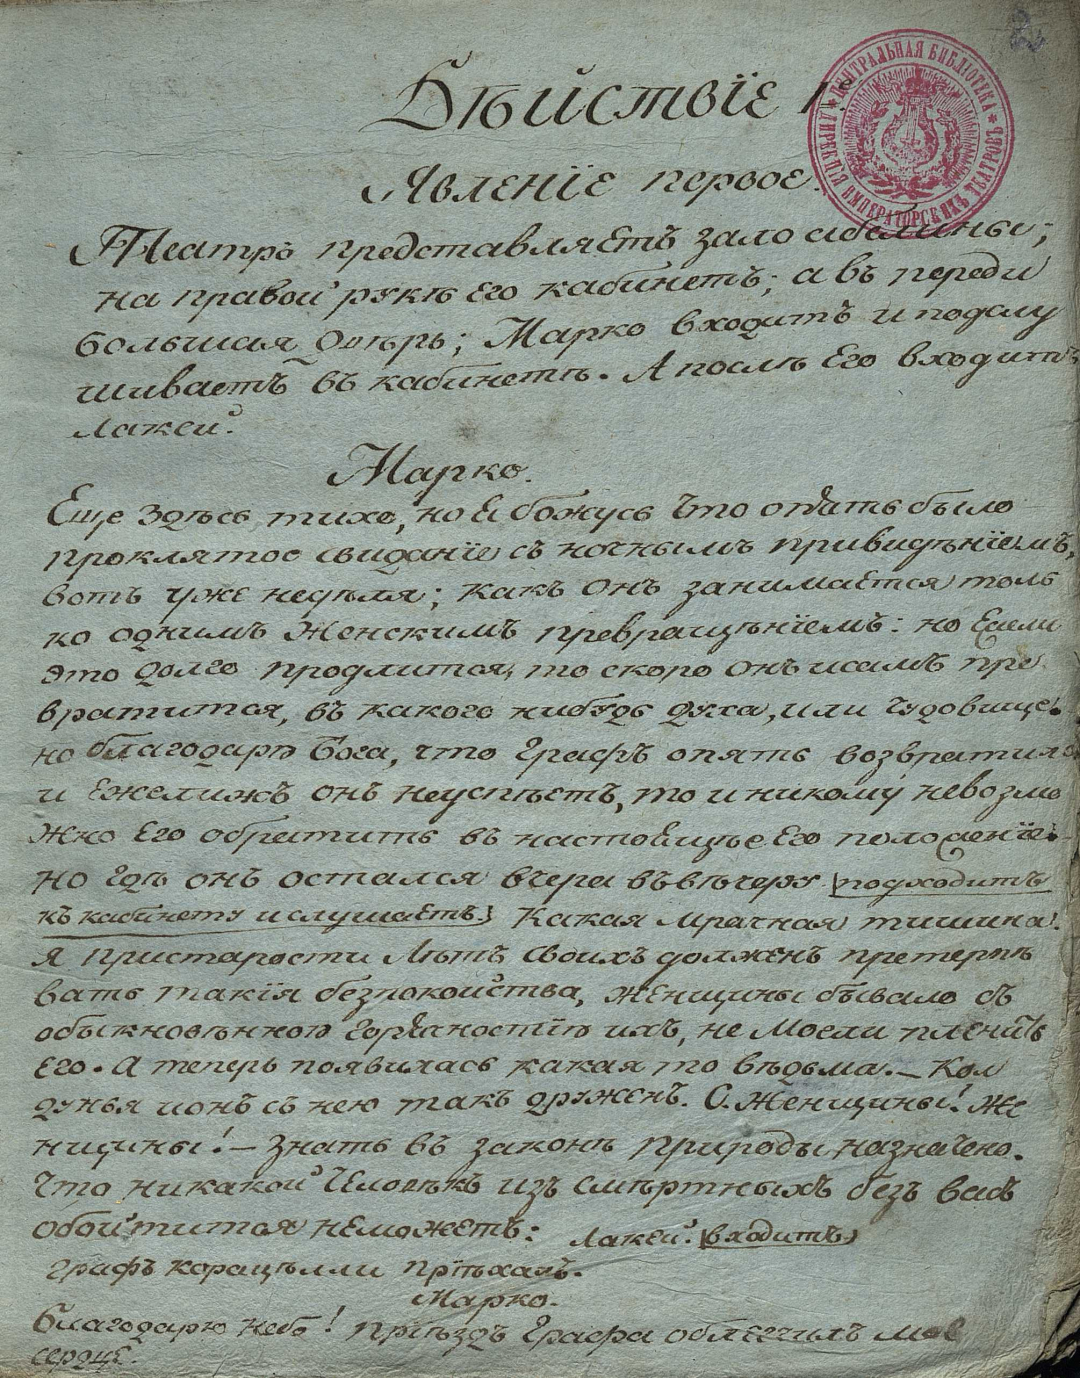 2
ЦЕНТРАЛЬНАЯ БИБЛІОТЕКА ДИРЕКЦІИ ИМПЕРАТОРСКИХЪ ТЕАТРОВЪ
Дѣйствїе 1е
Явленїе первое.
Театръ представляетъ зало
на правой рукѣ его кабинетъ; а въ переди
большая дверь; Марко входитъ и подслу
шиваетъ въ кабинетѣ. А послѣ его входитъ
лакей.
Марко.
Еще здѣсь тихо, но я божусь что опять было
проклятое свиданїе съ ночнымъ привидѣнїемъ,
вотъ уже недѣля; какъ онъ занимается толь
ко однимъ женскимъ превращѣнїемъ: но Если
это долго продлится, то скоро онъ исамъ пре
вратится, въ какого нибудь духа, или чудовище.
но благодарю Бога, что Графъ опять возвратился
и Ежелижъ онъ неуспѣетъ, то и никому невозмо
жно Его обратить въ настоящѣе Его положенїе.
Но гдѣ онъ остался вчера въвѣчеру (подходитъ
къ кабинету и слушаетъ) Какая мрачная тишина.
я пристарости лѣтъ своихъ долженъ претерпѣ
вать такїя безпокойства, женщины бывало съ
обыкновѣнною горячностїю ихъ, не могли пленить
Его. А теперь появилась какая то вѣдьма. – Кол
дунья ионъ съ нею такъ друженъ. О. Женщины! же
нщины! – знать въ законѣ природы назначено.
Что никакой человѣкъ изъ смѣртныхъ безъ васъ
обойтится неможетъ: лакей. (входитъ)
графъ корацѣлли прїѣхалъ.
Марко.
благодарю небо! прїѣздъ Графа облегчилъ мое
сердце.